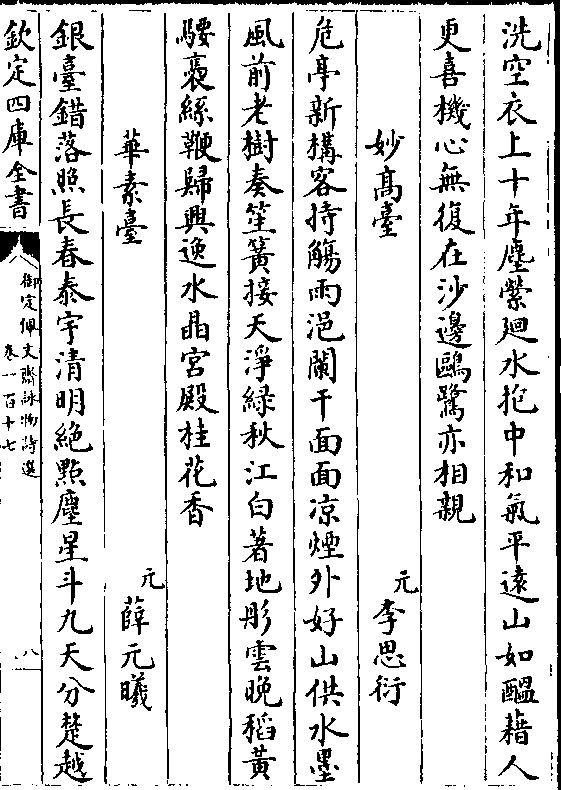 洗空衣上十年塵縈廻水抱中和氣平遠山如醞藉人
更喜機心無復在沙邊鷗鷺亦相親
妙髙臺 元李思衍
危亭新構客持觴雨浥闌干面面凉煙外好山供水墨
風前老樹奏笙簧接天淨緑秋江白著地彤雲晚稻黄
騕褭絲鞭歸興逸水晶宮殿桂花香
華素臺 元薛元曦
銀臺錯落照長春泰宇清明絶點塵星斗九天分楚越
欽定四庫全書 御定佩文齋詠物詩選 卷一百十七 八